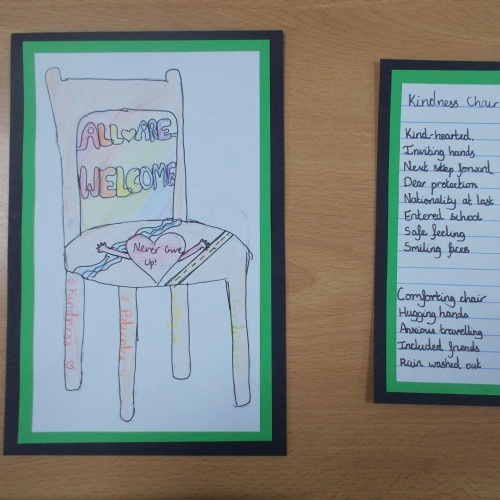 ALL ARE
WELCOME
Never Give
Up!
Kindness
Kindness Chair
Kind-hearted.
Inviting hands
Next step forward
Dear protection
Nationality at last
Entered school
Safe feeling
Smiling faces
Comforting chair
Hugging hands
Anxious travelling
Included friends
Rain washed out